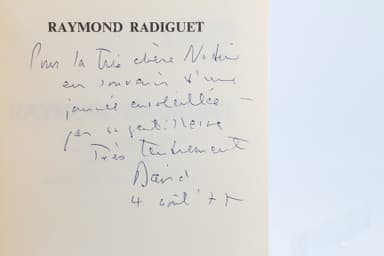 RAYMOND RADIGUET
Pour la très chère Nadine
en souvenir d'une
journée ensoleillée –
par sa gentillesse
Très tendrement
David
4 août 77